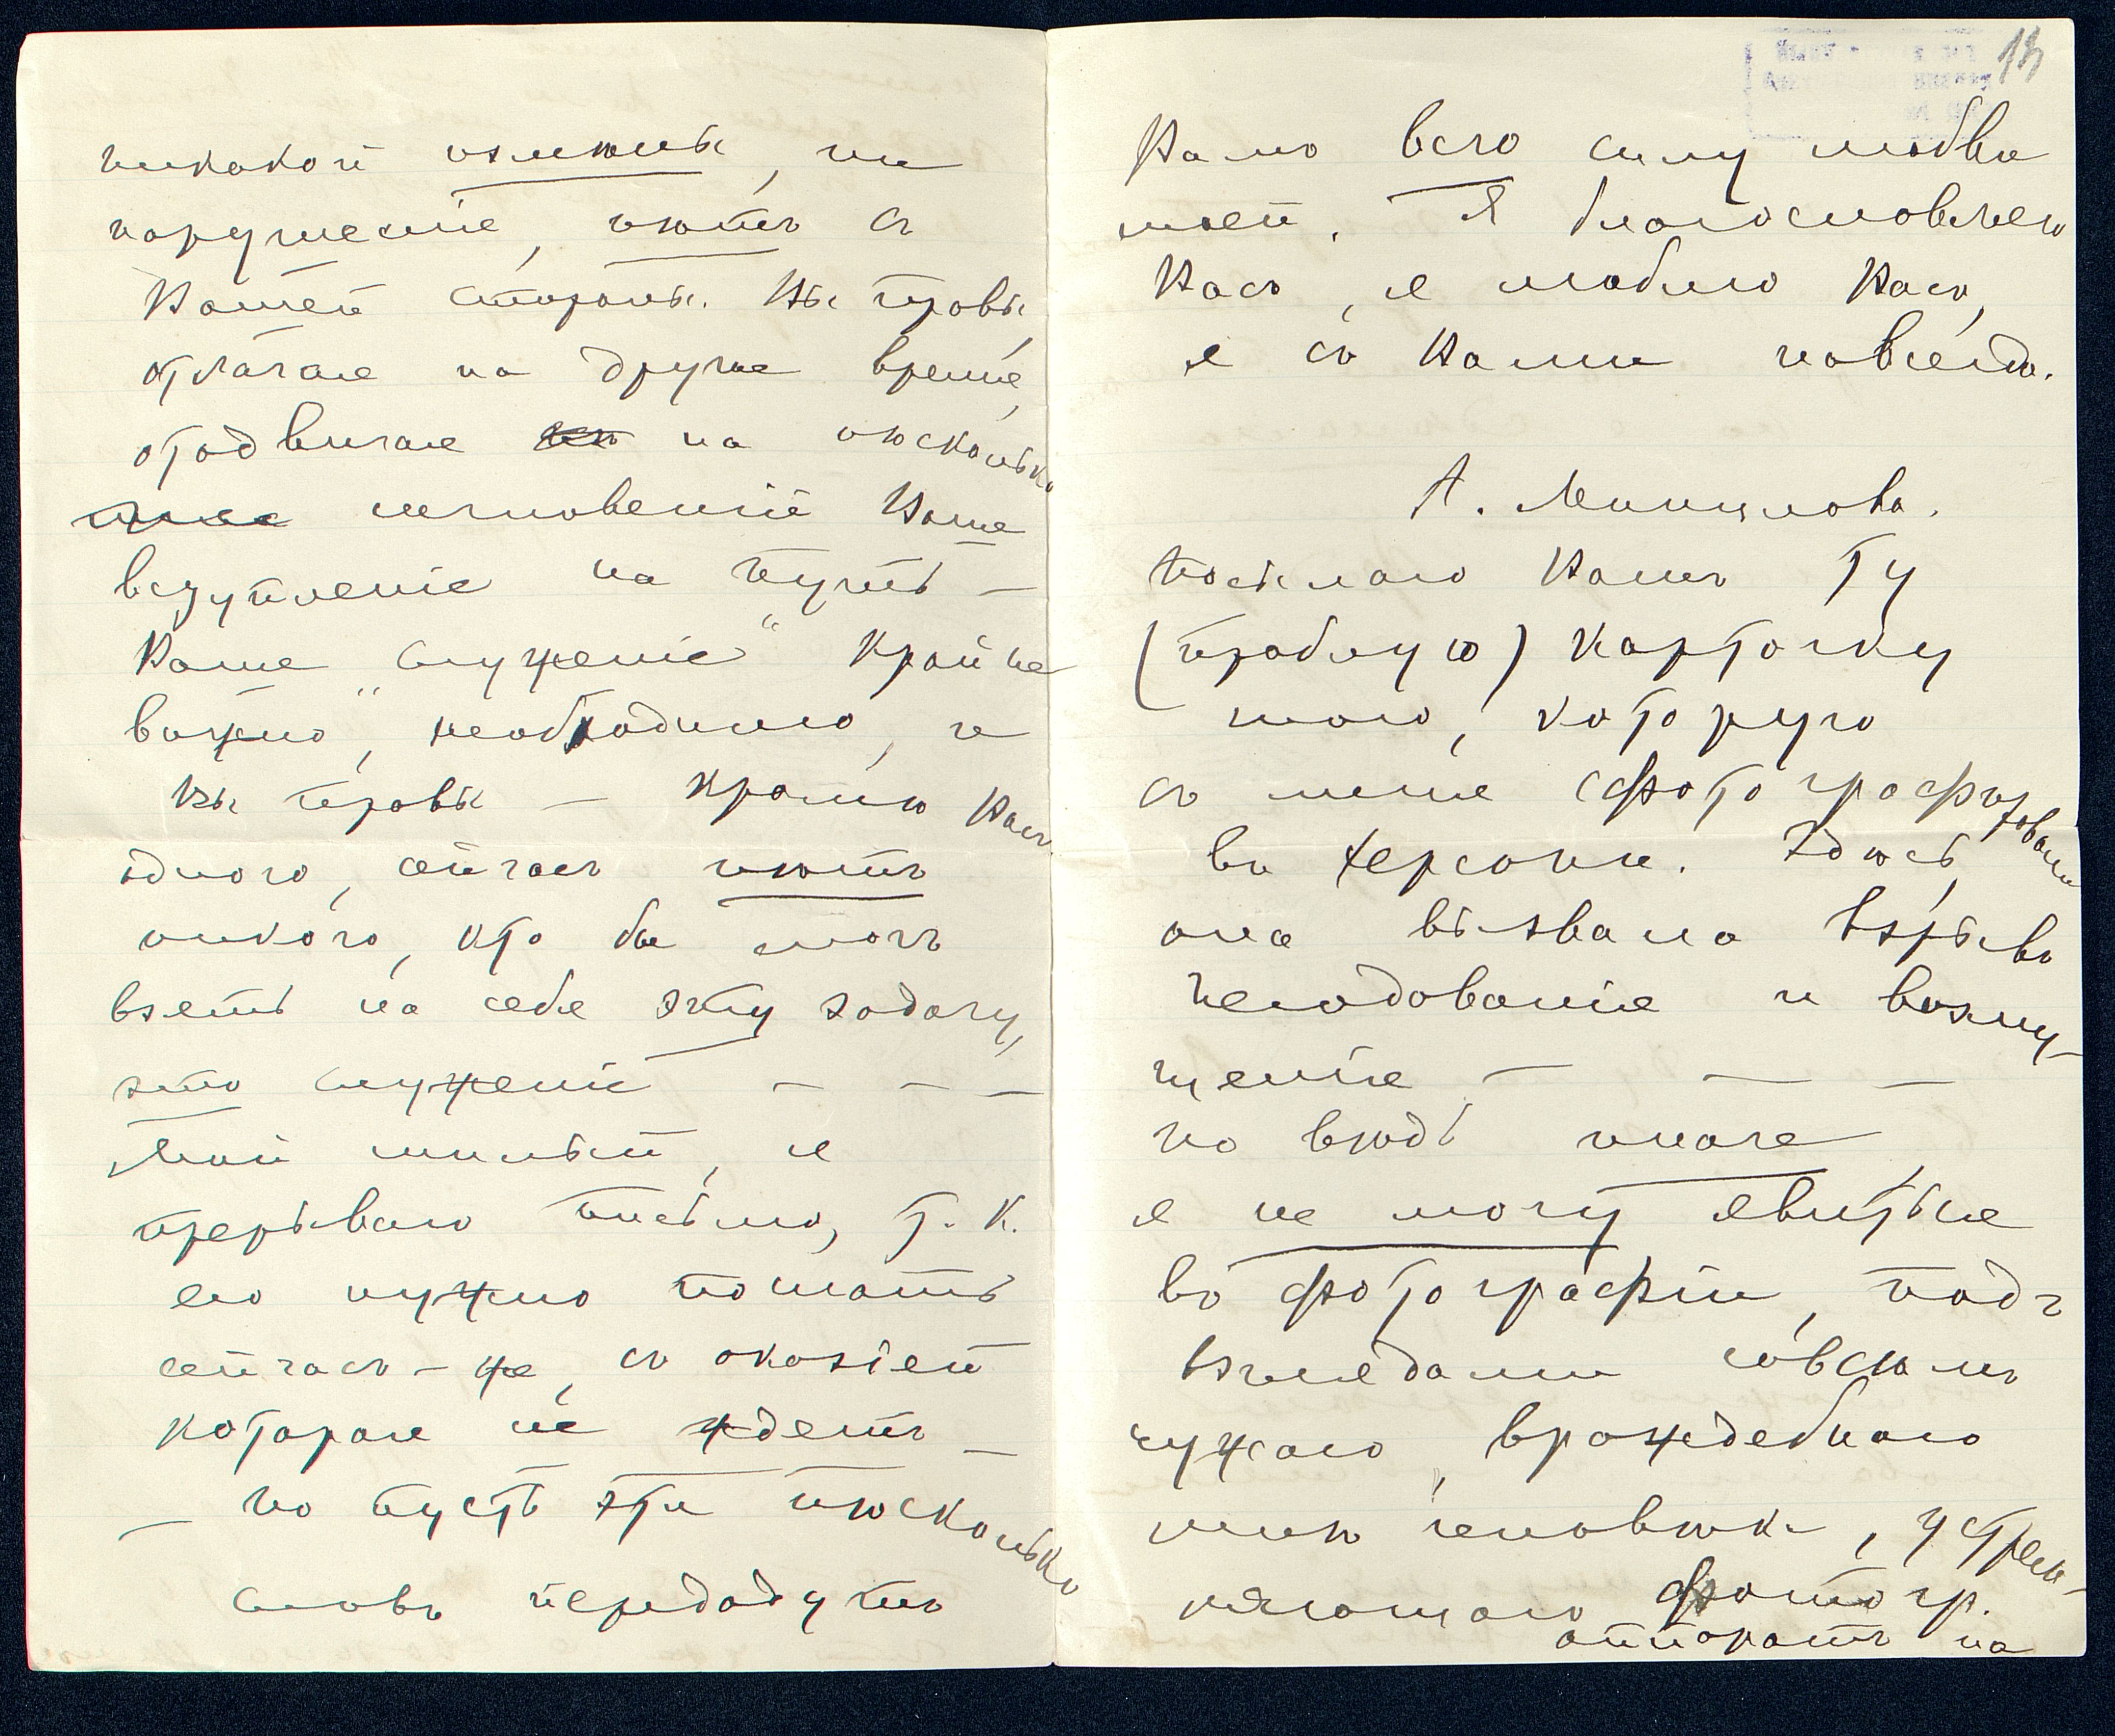 никакой измѣны, ни
нарушенія, нѣтъ съ
Вашей стороны. Вы правы,
отлагая на другое время,
отодвигая на нѣсколько
мгновеній Ваше
вступленіе на путь —
Ваше „служеніе“ крайне
важно, необходимо, и
Вы правы — кромѣ Васъ
одного, сейчасъ нѣтъ
никого, кто бы могъ
взять на себя эту задачу,
это служеніе — — —
Мой милый, я
прерываю письмо, т. к.
его нужно послать
сейчасъ-же, съ оказіей
которая не ждетъ —
— но пусть эти нѣсколько
словъ передадутъ
Вамъ всю силу любви
моей. Я благословляю
Васъ, я люблю Васъ,
я съ Вами навсегда.
А. Минцлова.
Посылаю Вамъ ту
(пробную) карточку
мою, которую
съ меня сфотографировали
въ Херсонѣ. Здѣсь,
она вызвала взрывъ
негодованія и возму-
щенія — — —
но вѣдь иначе,
я не могу явиться
въ фотографіи, подъ
взглядами совсѣмъ
чужаго, враждебнаго
мнѣ человѣка, устрем-
ляющаго фотогр.
аппаратъ на
13